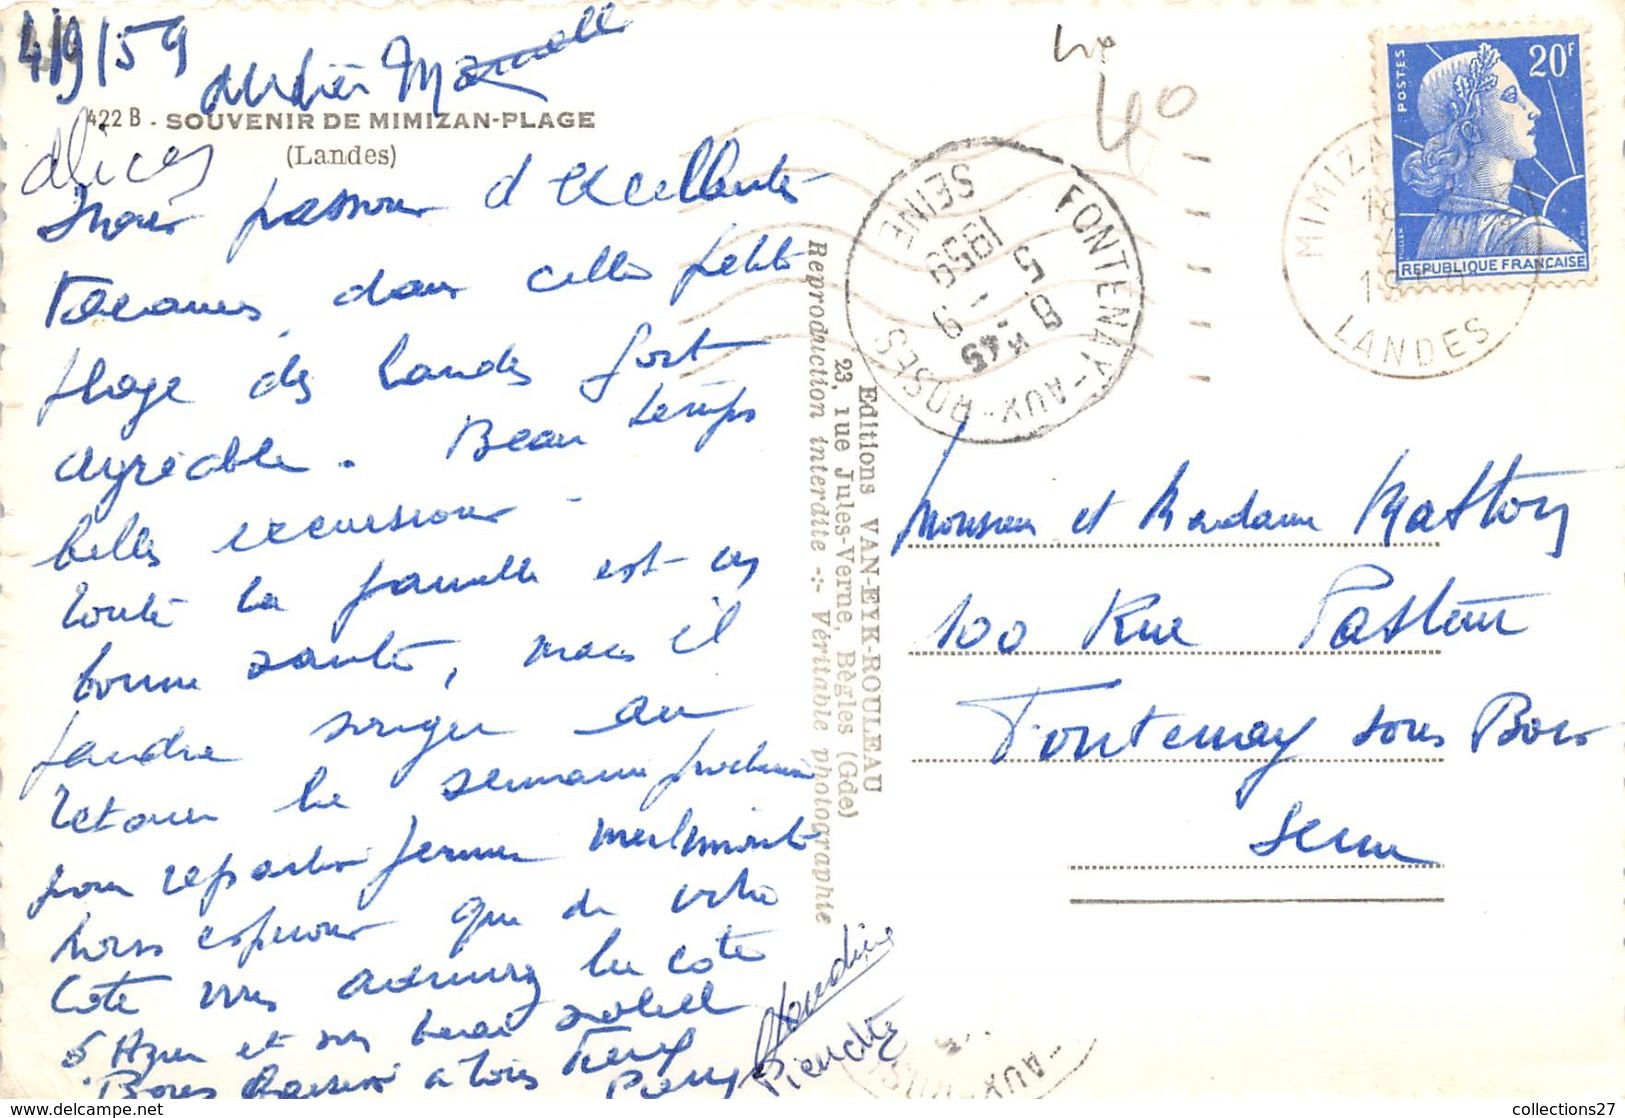 4/9/59
422 B - SOUVENIR DE MIMIZAN-PLAGE
(Landes)
Nous passons d'excellentes
vacances dans cette petite
plage des Landes fort
agréable. Beau temps
belles excursions
Toute la famille est en
bonne santé, mais il
faudra songer au
retour la semaine prochaine
pour repartir
Nous espérons que de votre
côté vous la côte
d'Azur et son beau soleil
Bons baisers à tous
Claudine
Pierrette
Editions VAN-EYK-ROULEAU
23, rue Jules-Verne, Bègles (Gde)
Reproduction interdite -:- Véritable photographie
40
FONTENAY-AUX-ROSES
SEINE
8 H 45
5 - 9
1959
POSTES
20F
REPUBLIQUE FRANÇAISE
MIMIZAN
LANDES
Monsieur et Madame Matton
100 Rue Pasteur
Fontenay sous Bois
Seine
collections27